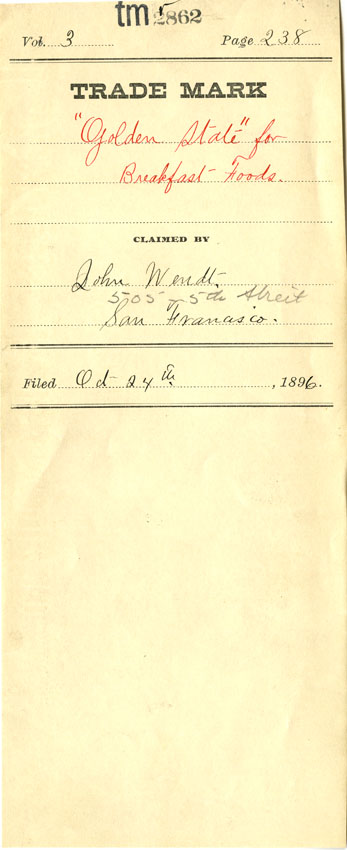 tm 2862
Vol. 3 Page 238
TRADE MARK
"Golden State" for
Breakfast Foods.
CLAIMED BY
John Wendt.
505 - 5th Street
San Francisco.
Filed Oct 24th, 1896.